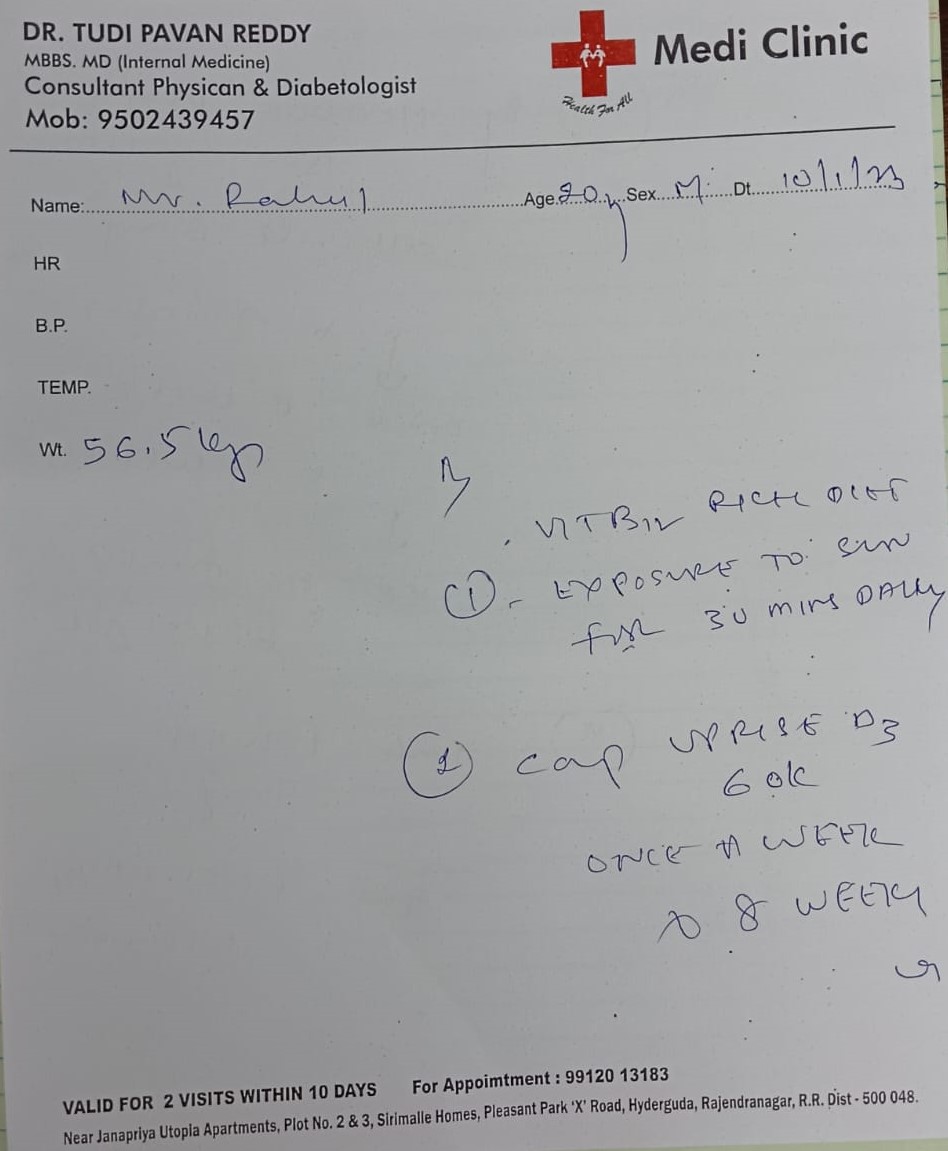 DR. TUDI PAVAN REDDY
MBBS. MD (Internal Medicine)
Consultant Physican & Diabetologist
Mob: 9502439457
Medi Clinic
Health For All
Name: Mr. Rahul Age 20y Sex M Dt. 10/1/23
HR
B.P.
TEMP.
Wt. 56.5 kgs
. VIT B12 RICH DIET
(1) - EXPOSURE TO SUN
for 30 mins DAILY
(2) cap UPRISE D3
60K
ONCE A WEEK
x 8 WEEKS
VALID FOR 2 VISITS WITHIN 10 DAYS For Appoimtment : 99120 13183
Near Janapriya Utopia Apartments, Plot No. 2 & 3, Sirimalle Homes, Pleasant Park 'X' Road, Hyderguda, Rajendranagar, R.R. Dist - 500 048.